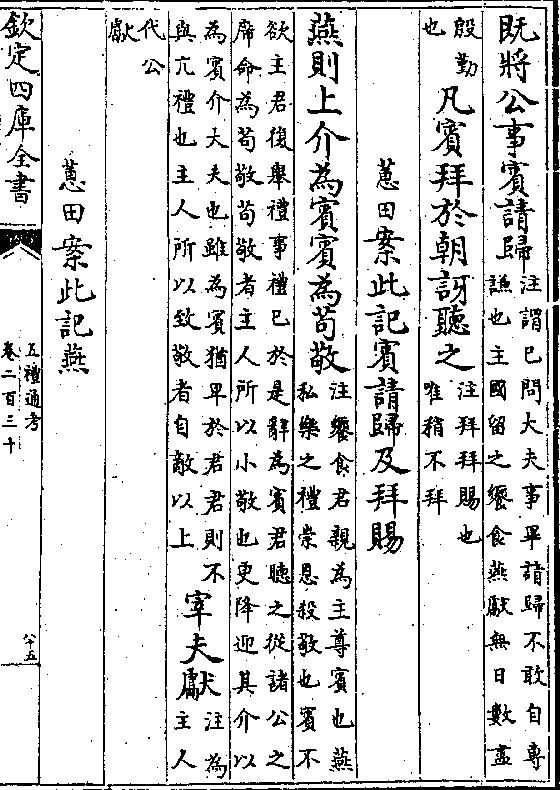 既將公事賓請歸注謂已問大夫事畢請歸不敢自專
謙也主國留之饗食燕獻無日數盡
殷勤
也凡賓拜於朝訝聽之注拜拜賜也
唯稍不拜
蕙田案此記賓請歸及拜賜
燕則上介為賓賓為苟敬注饗食君親為主尊賓也燕
私樂之禮崇恩殺敬也賓不
欲主君復舉禮事禮已於是辭為賓君聽之從諸公之
席命為苟敬苟敬者主人所以小敬也更降迎其介以
為賓介大夫也雖為賓猶卑於君君則不
與亢禮也主人所以致敬者自敵以上宰夫獻注為
主人
代公
獻
蕙田案此記燕
欽定四庫全書
五禮通考
卷二百三十
八十五